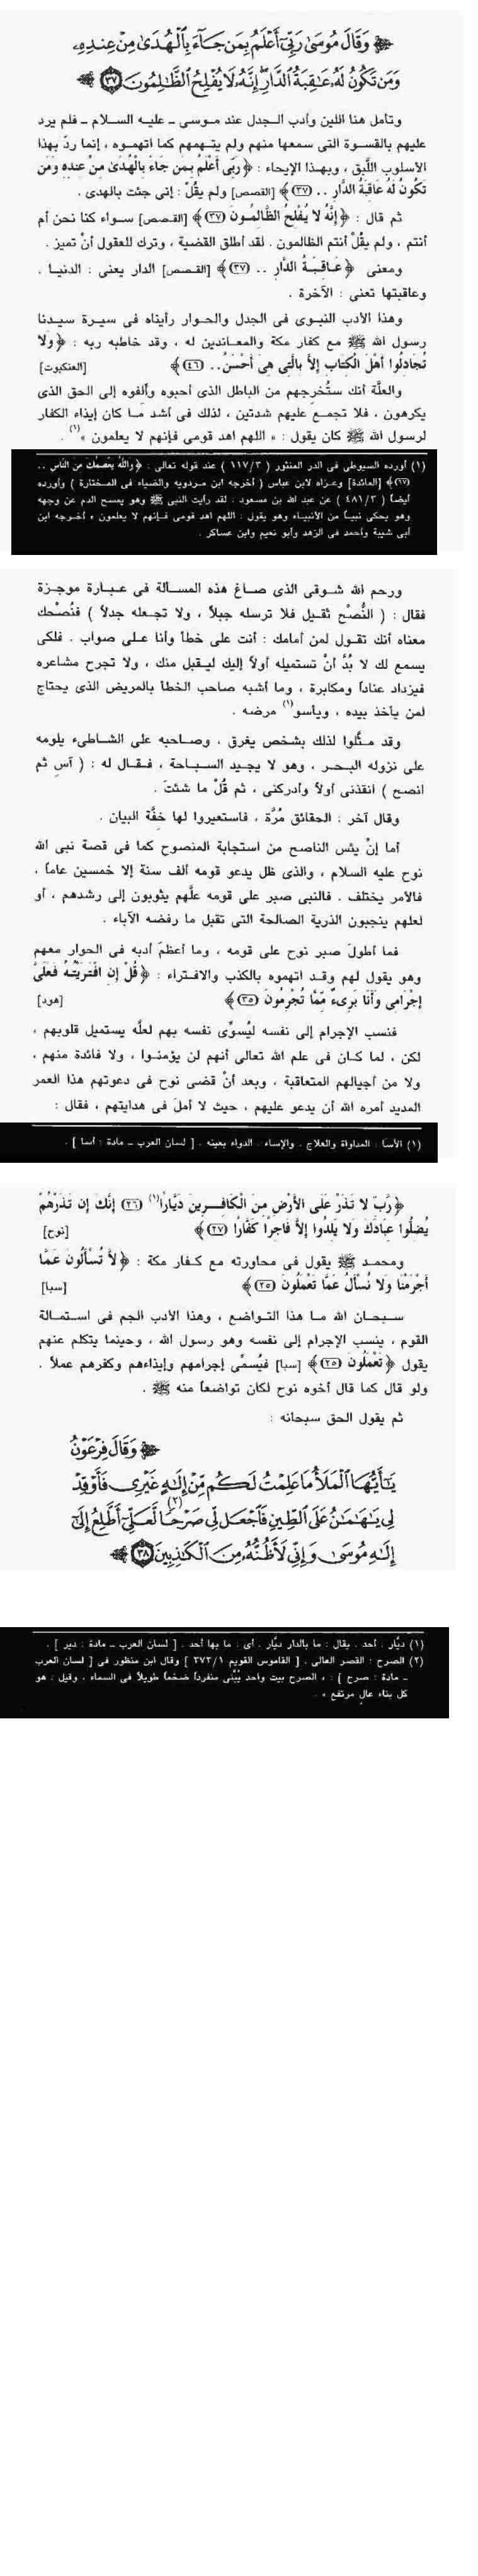 وَقَالَ مُوسَىٰ رَبِّىٓ أَعْلَمُ بِمَن جَآءَ بِٱلْهُدَىٰ مِنْ عِندِهِۦ
وَمَن تَكُونُ لَهُۥ عَٰقِبَةُ ٱلدَّارِ إِنَّهُۥ لَا يُفْلِحُ ٱلظَّٰلِمُونَ ٣٧
وتأمل هنا اللين وأدب الجدل عند موسى - عليه السلام - فلم يرد
عليهم بالقسوة التى سمعها منهم ولم يتهمهم كما اتهموه ، إنما ردَّ بهذا
الأسلوب اللَّبق ، وبهذا الإيحاء : ﴿ رَبِّى أَعْلَمُ بِمَن جَاءَ بِالْهُدَىٰ مِنْ عِندِهِ وَمَن
تَكُونُ لَهُ عَاقِبَةُ الدَّارِ .. (٣٧) ﴾ [القصص] ولم يقُلْ : إنى جئت بالهدى .
ثم قال : ﴿ إِنَّهُ لا يُفْلِحُ الظَّالِمُونَ (٣٧) ﴾ [القصص] سواء كنا نحن أم
أنتم ، ولم يقُلْ أنتم الظالمون . لقد أطلق القضية ، وترك للعقول أنْ تميز .
ومعنى ﴿ عَاقِبَةُ الدَّارِ .. (٣٧) ﴾ [القصص] الدار يعنى : الدنيا ،
وعاقبتها تعنى : الآخرة .
وهذا الأدب النبوى فى الجدل والحوار رأيناه فى سيرة سيدنا
رسول الله ﷺ مع كفار مكة والمعاندين له ، وقد خاطبه ربه : ﴿ وَلا
تُجَادِلُوا أَهْلَ الْكِتَابِ إِلاَّ بِالَّتِى هِىَ أَحْسَنُ.. (٤٦) ﴾ [العنكبوت]
والعلَّة أنك ستُخرجهم من الباطل الذى أحبوه وألفوه إلى الحق الذى
يكرهون ، فلا تجمع عليهم شدتين ، لذلك فى أشد ما كان إيذاء الكفار
لرسول الله ﷺ كان يقول : « اللهم اهد قومى فإنهم لا يعلمون »(١) .
(١) أورده السيوطى فى الدر المنثور ( ١١٧/٣ ) عند قوله تعالى : ﴿ وَاللَّهُ يَعْصِمُكَ مِنَ النَّاسِ ..
(٦٧) ﴾ [المائدة] وعزاه لابن عباس ( أخرجه ابن مردويه والضياء فى المختارة ) وأورده
أيضاً ( ٤٨١/٣ ) عن عبد الله بن مسعود : لقد رأيت النبى ﷺ وهو يمسح الدم عن وجهه
وهو يحكى نبياً من الأنبياء وهو يقول : اللهم اهد قومى فإنهم لا يعلمون « أخرجه ابن
أبى شيبة وأحمد فى الزهد وأبو نعيم وابن عساكر .
ورحم الله شوقى الذى صاغ هذه المسألة فى عبارة موجزة
فقال : ( النُّصْح ثقيل فلا ترسله جبلاً ، ولا تجعله جدلاً ) فنُصْحك
معناه أنك تقول لمن أمامك : أنت على خطأ وأنا على صواب . فلكى
يسمع لك لا بُدَّ أنْ تستميله أولاً إليك ليقبل منك ، ولا تجرح مشاعره
فيزداد عناداً ومكابرة ، وما أشبه صاحب الخطأ بالمريض الذى يحتاج
لمن يأخذ بيده ، ويأسو(١) مرضه .
وقد مثَّلوا لذلك بشخص يغرق ، وصاحبه على الشاطىء يلومه
على نزوله البحر ، وهو لا يجيد السباحة ، فقال له : ( آسِ ثم
انصح ) أنقذنى أولاً وأدركنى ، ثم قُلْ ما شئتَ .
وقال آخر : الحقائق مُرَّة ، فاستعيروا لها خفَّة البيان .
أما إنْ يئس الناصح من استجابة المنصوح كما فى قصة نبى الله
نوح عليه السلام ، والذى ظل يدعو قومه ألف سنة إلا خمسين عاماً ،
فالأمر يختلف . فالنبى صبر على قومه علَّهم يثوبون إلى رشدهم ، أو
لعلهم ينجبون الذرية الصالحة التى تقبل ما رفضه الآباء .
فما أطولَ صبر نوح على قومه ، وما أعظمَ أدبه فى الحوار معهم
وهو يقول لهم وقد اتهموه بالكذب والافتراء : ﴿ قُلْ إِنِ افْتَرَيْتُهُ فَعَلَىَّ
إِجْرَامِى وَأَنَا بَرِىءٌ مِّمَّا تُجْرِمُونَ (٣٥) ﴾ [هود]
فنسب الإجرام إلى نفسه ليُسوِّى نفسه بهم لعلَّه يستميل قلوبهم ،
لكن ، لما كان فى علم الله تعالى أنهم لن يؤمنوا ، ولا فائدة منهم ،
ولا من أجيالهم المتعاقبة ، وبعد أنْ قضى نوح فى دعوتهم هذا العمر
المديد أمره الله أن يدعو عليهم ، حيث لا أملَ فى هدايتهم ، فقال :
(١) الأسا : المداواة والعلاج . والإساء : الدواء بعينه . [ لسان العرب - مادة : أسا ] .
﴿ رَّبِّ لا تَذَرْ عَلَى الأَرْضِ مِنَ الْكَافِرِينَ دَيَّارًا(١) (٢٦) إِنَّكَ إِن تَذَرْهُمْ
يُضِلُّوا عِبَادَكَ وَلا يَلِدُوا إِلاَّ فَاجِرًا كَفَّارًا (٢٧) ﴾ [نوح]
ومحمد ﷺ يقول فى محاورته مع كفار مكة : ﴿ لاَّ تُسْأَلُونَ عَمَّا
أَجْرَمْنَا وَلا نُسْأَلُ عَمَّا تَعْمَلُونَ (٢٥) ﴾ [سبأ]
سبحان الله ما هذا التواضع ، وهذا الأدب الجم فى استمالة
القوم ، ينسب الإجرام إلى نفسه وهو رسول الله ، وحينما يتكلم عنهم
يقول ﴿ تَعْمَلُونَ (٢٥) ﴾ [سبأ] فيُسمِّى إجرامهم وإيذاءهم وكفرهم عملاً .
ولو قال كما قال أخوه نوح لكان تواضعاً منه ﷺ .
ثم يقول الحق سبحانه :
وَقَالَ فِرْعَوْنُ
يَٰٓأَيُّهَا ٱلْمَلَأُ مَا عَلِمْتُ لَكُم مِّنْ إِلَٰهٍ غَيْرِى فَأَوْقِدْ
لِى يَٰهَٰمَٰنُ عَلَى ٱلطِّينِ فَٱجْعَل لِّى صَرْحًا(٢) لَّعَلِّىٓ أَطَّلِعُ إِلَىٰٓ
إِلَٰهِ مُوسَىٰ وَإِنِّى لَأَظُنُّهُۥ مِنَ ٱلْكَٰذِبِينَ ٣٨
(١) ديَّار : أحد . يقال : ما بالدار ديَّار . أى : ما بها أحد . [ لسان العرب - مادة : دير ] .
(٢) الصرح : القصر العالى . [ القاموس القويم ٣٧٣/١ ] وقال ابن منظور فى [ لسان العرب
- مادة : صرح ] : « الصرح بيت واحد يُبْنَى منفرداً ضخماً طويلاً فى السماء . وقيل : هو
كل بناء عالٍ مرتفع » .